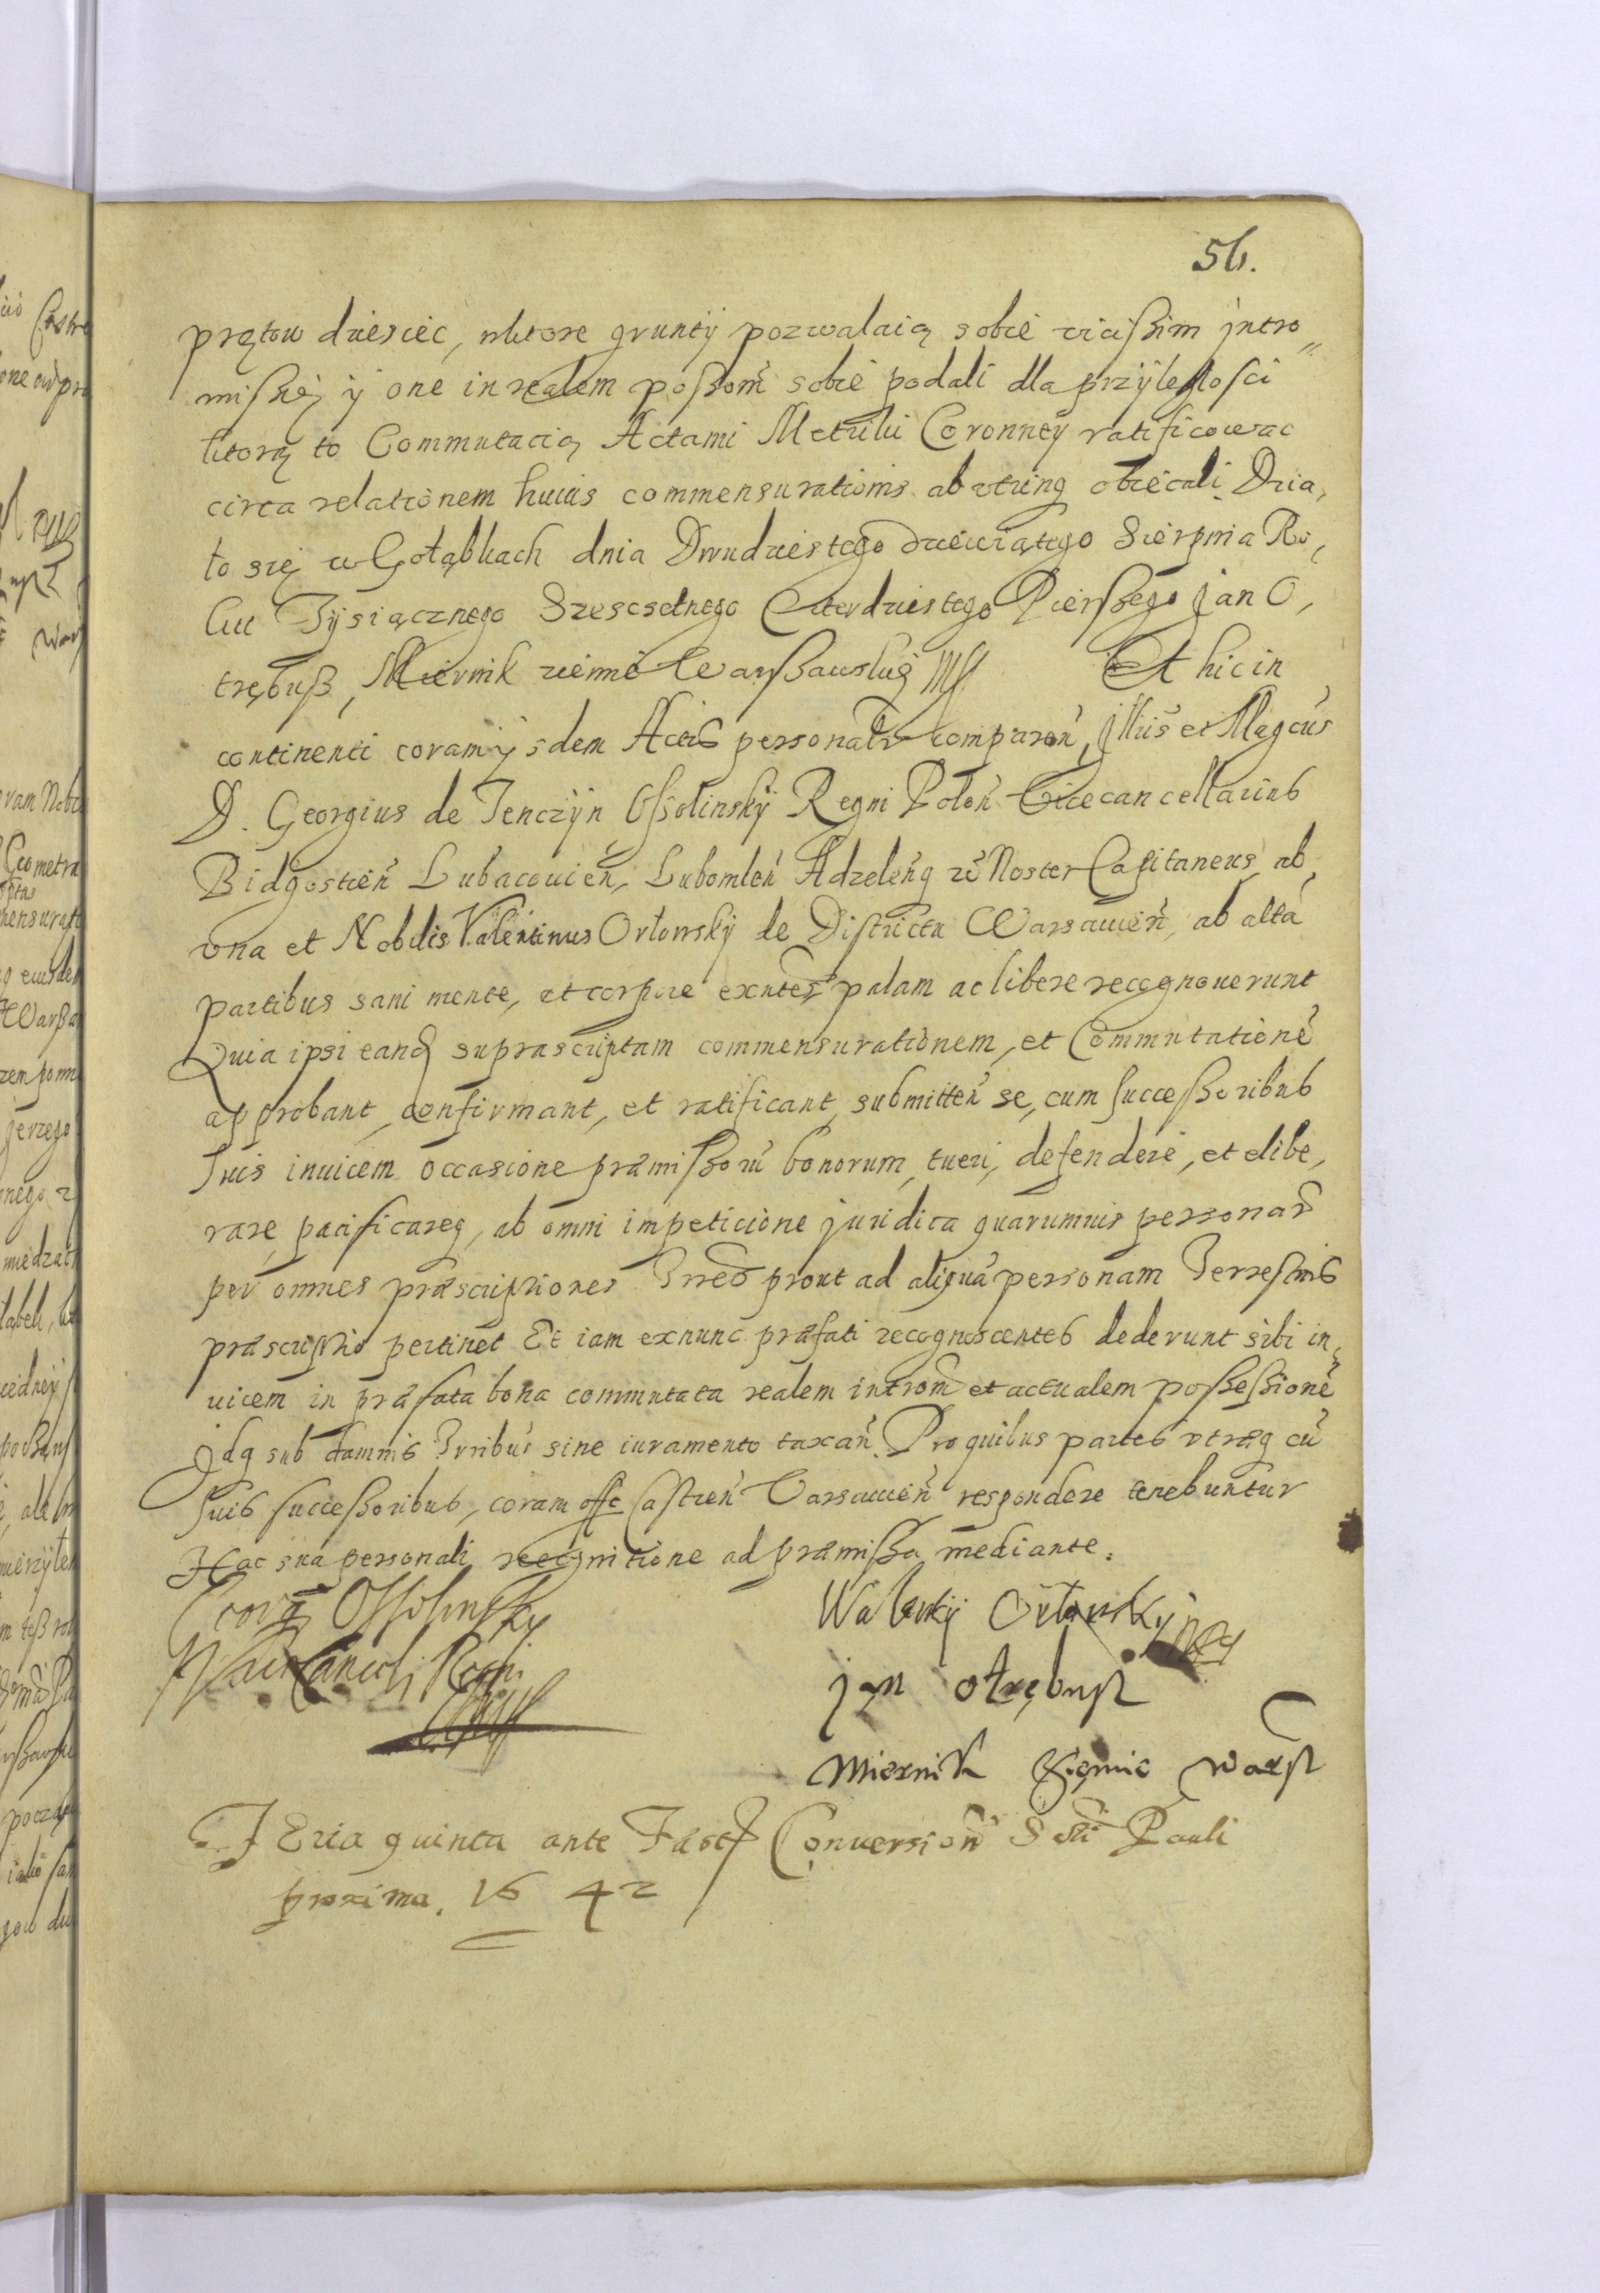 56.
prętow dziesięc, ktore grunty pozwalaią sobie vicissim intro=
missię y one in realem possom̃ sobie podali dla przyległosci
ktorą to Commutacią Actami Metriki Coronney ratificowac
circa relationem huius commensurationis ab utrinq obiecali. Dzia,
ło się w Gołąbkach dnia Dwudziestego dziewiątego Sierpnia Ro,
ku Tysiącznego Szescsetnego Czterdziestego Pierszego Jan O,
trębuß, Miernik ziemie Warßawskiey Et hic in
continenti coram ysdem Actis personalr comparen̄, Jllūs et Magcūs
D. Georgius de Tenczyn Ossolinsky Regni Polon̄ Vicecancellarius
Bidgostien̄ Lubacouien̄, Lubomlen̄ Adzelen̄q Noster Capitaneus, ab
vna et Nobilis Valentinus Orlowsky de Districtu Warsauien̄, ab altã
partibus sani mente, et corpore exntes palam ac libere recognouerunt
Quia ipsi eand suprascriptam commensurationem, et Commutationẽ
approbant, confirmant, et ratificant, submitten̄ se, cum successoribus
suis inuicem occasione præmissorū bonorum, tueri, defendere, et elibe,
rare, pacificareq, ab omni impeticione juridica quarumuis personar
per omnes præscriptiones Trres prout ad aliquã personam Terrestris
præscriptio pertinet Et iam exnunc præfati recognoscentes dederunt sibi in,
uicem in præfata bona commutata realem introm̃ et actualem possessionẽ
Jdq sub damnis Trribus sine iuramento taxan̄. Pro quibus partes vtræq cū
suis successoribus, coram offo Castren̄ Varsauien̄ respondere tenebuntur
Hac sua personali recognitione ad præmissa mediante.
Georg Ossolinsky
Vicecancell Regni
Walenty Orłowsky
jan otrębusz
Miernik Ziemie Warsz
FEria quinta ante Fest Conversion̄ S sti Pauli
proxima. 1642